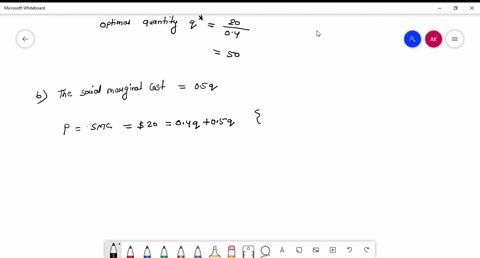 Microsoft Whiteboard
optimal quantity q* = 20 / 0.4
= 50
AK
b) The social marginal cost = 0.5q
P = SMC = $20 = 0.4q + 0.5q {
A